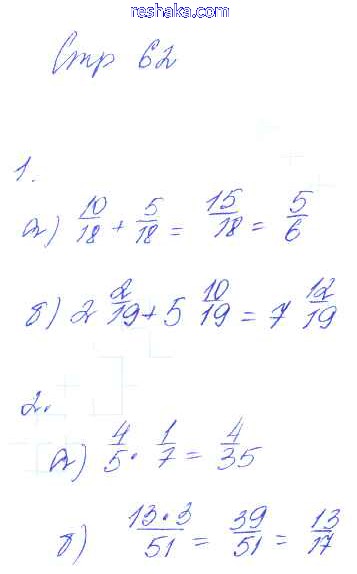 reshaka.com
Стр 62
1.
а) 10/18 + 5/18 = 15/18 = 5/6
б) 2 2/19 + 5 10/19 = 7 12/19
2.
а) 4/5 · 1/7 = 4/35
б) 13·3/51 = 39/51 = 13/17